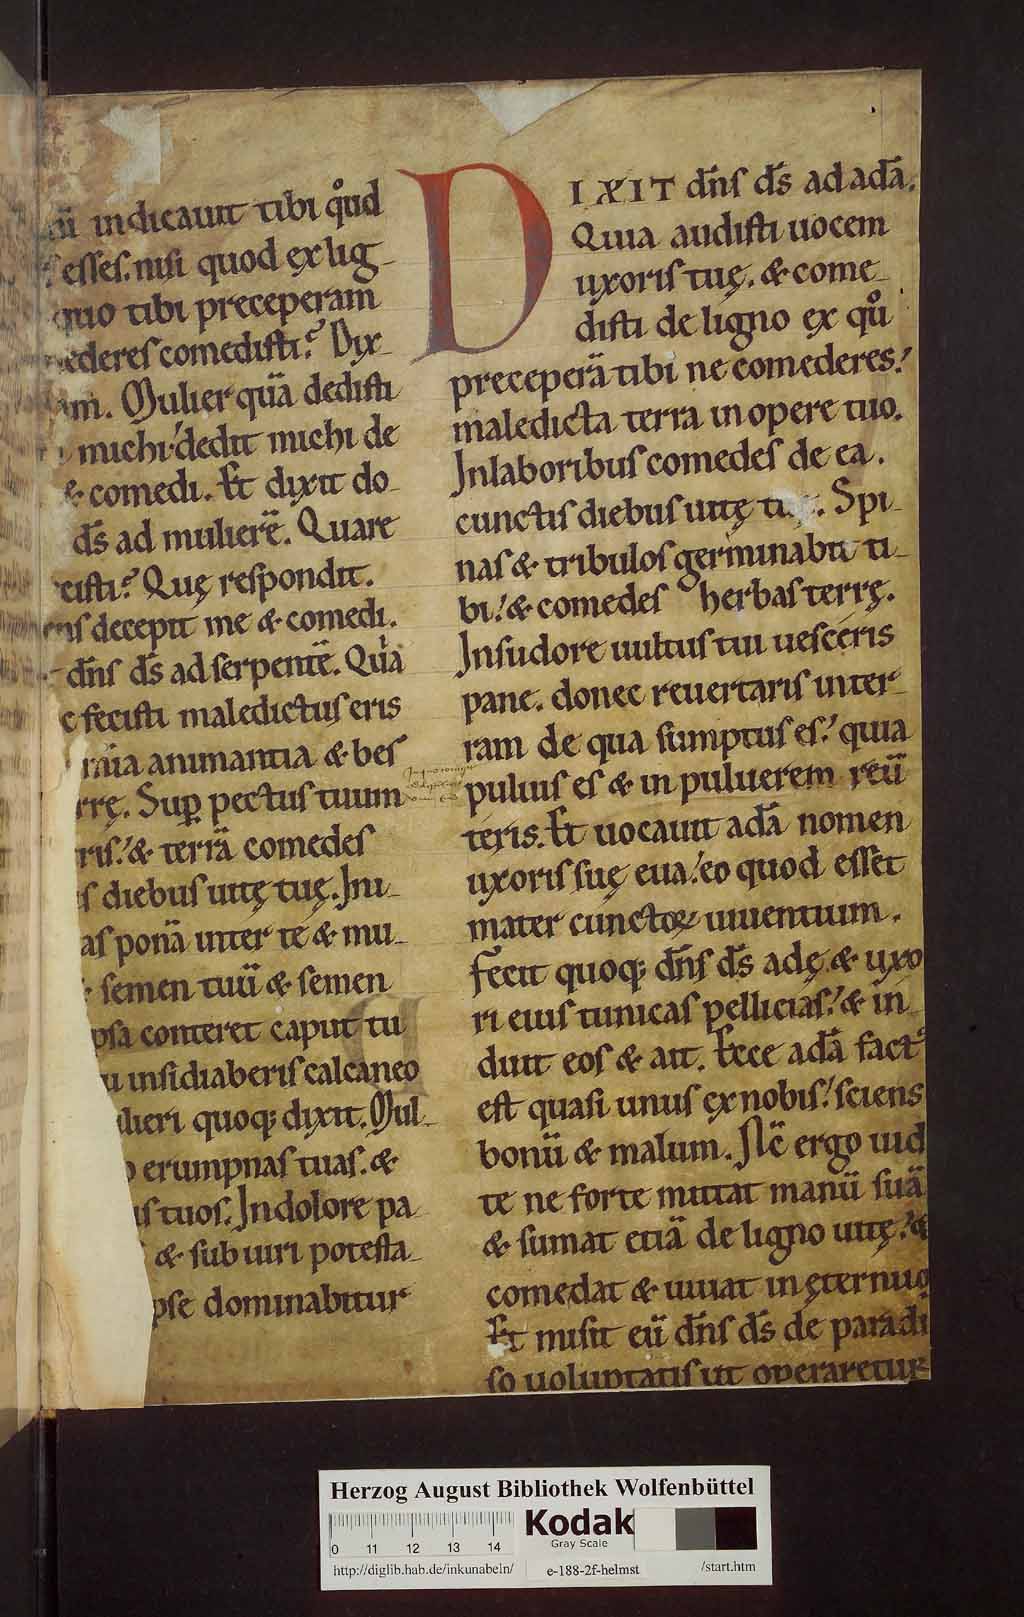 indicauit tibi qͦd
esses. nisi quod ex lig-
quo tibi preceperam
ederes comedisti? Dix-
am. Mulier quā dedisti
michi dedit michi de
& comedi. Et dixit do-
d̄s ad mulierē. Quare
cisti? Quę respondit.
ens decepit me & comedi.
dn̄s d̄s ad serpentē. Quia
c fecisti maledictus eris
animantia & bes
rrę. Sup̱ pectus tuum
ris! & terrā comedes
s diebus uitę tuę. Ini-
as ponā inter te & mu-
semen tuū & semen
psa conteret caput tu
u insidiaberis calcaneo
lieri quoq; dixit. Mul-
erumpnas tuas. &
us tuos. In dolore pa-
& sub uiri potesta-
pse dominabitur
DIXIT dn̄s d̄s ad adā.
Quia audisti uocem
uxoris tuę. & come-
disti de ligno ex qͦ
preceperā tibi ne comederes!
maledicta terra in opere tuo.
In laboribus comedes de ea.
cunctis diebus uitę Spi-
nas & tribulos germinabit ti-
bi! & comedes herbas terrę.
In sudore uultus tui uesceris
pane. donec reuertaris in ter-
ram de qua sumptus es! quia
puluis es & in puluerem reū
teris. Et uocauit adā nomen
uxoris suę eua! eo quod esset
mater cunctoꝝ uiuentium.
Fecit quoq; dn̄s d̄s adę & uxo
ri eius tunicas pellicias! & in-
duit eos & ait. Ecce adā factꝰ
est quasi unus ex nobis! sciens
bonū & malum. Nc̄ ergo uid
te ne forte mittat manū suā
& sumat etiā de ligno uitę! &
comedat & uiuat in ęternuo
Et misit eū dn̄s d̄s de paradi
so uoluptatis ut operaretur
Herzog August Bibliothek Wolfenbüttel
0 11 12 13 14
Kodak
Gray Scale
http://diglib.hab.de/inkunabeln/ e-188-2f-helmst /start.htm